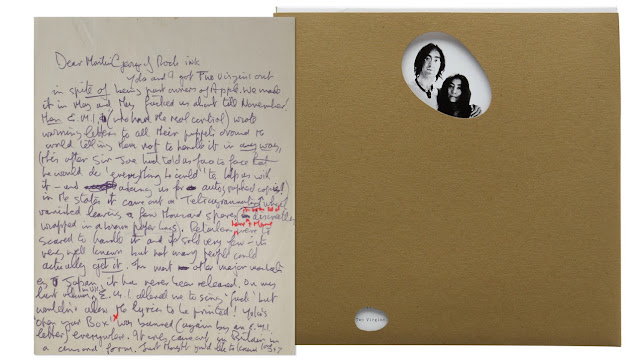 Dear Martin George of Rock ink
Yoko and I got Two Virgins out
in spite of being part owners of Apple. We made
it in May and they fucked us about till November
Then E.M.I. (who had the real control) wrote
warning letters to all their puppets around the
world telling them not to handle it in any way.
(this after Sir Joe had told us face to face that
he would do 'everything he could' to help us with
it - and asking us for autographed copies!)
in the states it came out on which
vanished leaving a few thousand spares
here & there
wrapped in a brown paper bag). Retailers were too
scared to handle it and it sold very few - its
very well known but not many people could
actually get it. In most other major markets
eg Japan, it has never been released. On our
last album E.M.I. allowed me to sing 'fuck' but
wouldn't allow the lyrics to be printed! Yoko's
'Open your Box' was banned (again by an E.M.I.
letter) everywhere. It came out in Britain in
a censored form. Just thought you'd like to know
Two Virgins